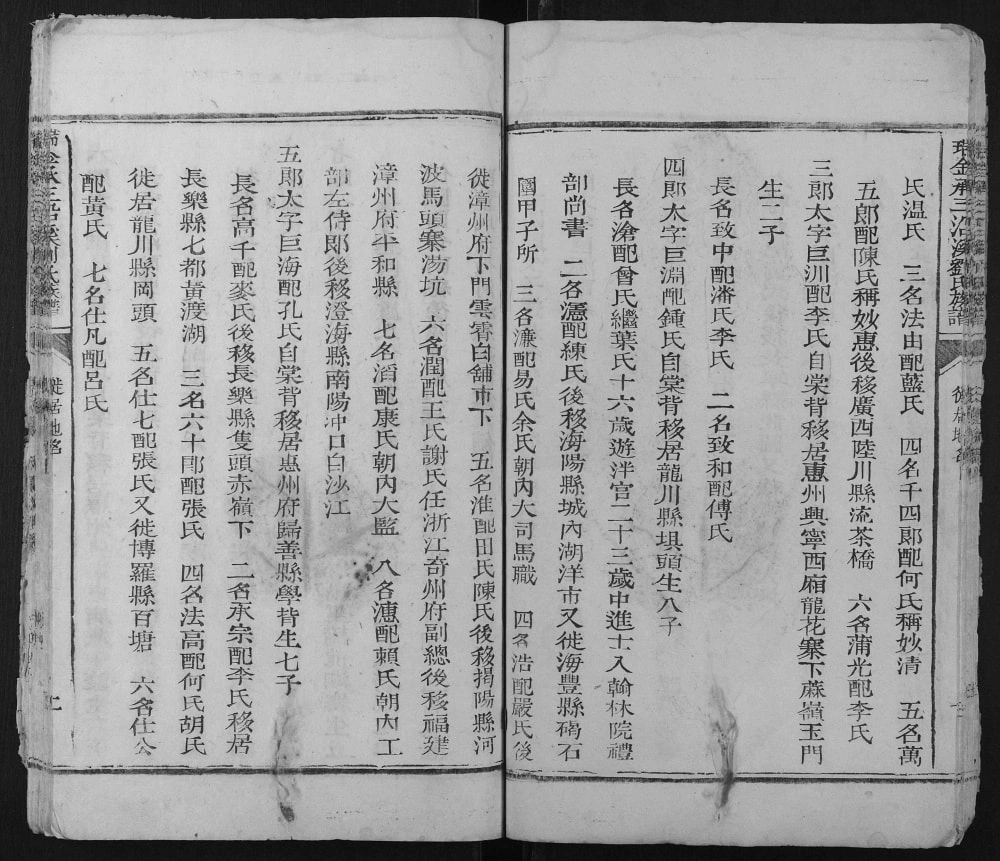 瑞金承三沿溪劉氏族譜
徙居地名
氏温氏　三名法由配藍氏　四名千四郎配何氏稱妙清　五名萬
五郎配陳氏稱妙惠後移廣西陸川縣流茶橋　六名蒲光配李氏
三郎太字巨汌配李氏自棠背移居惠州興寧西廂龍花寨下蔴嶺玉門
生二子
長名致中配潘氏李氏　二名致和配傅氏
四郎太字巨淵配鍾氏自棠背移居龍川縣埧頭生八子
長名滄配曾氏繼葉氏十六歲遊泮宫二十三歲中進士入翰林院禮
部尚書　二名瀗配練氏後移海陽縣城內湖洋市又徙海豐縣碣石
衛甲子所　三名濂配易氏余氏朝內大司馬職　四名浩配嚴氏後
徙漳州府下門雲霄白舖市下　五名淮配田氏陳氏後移揭陽縣河
波馬頭寨湯坑　六名潤配王氏謝氏任浙江奇州府副總後移福建
漳州府平和縣　七名滔配康氏朝內大監　八名漶配賴氏朝內工
部左侍郎後移澄海縣南陽冲口白沙江
五郎太字巨海配孔氏自棠背移居惠州府歸善縣學背生七子
長名高千配麥氏後移長樂縣隻頭赤嶺下　二名承宗配李氏移居
長樂縣七都黃渡湖　三名六十郎配張氏　四名法高配何氏胡氏
徙居龍川縣岡頭　五名仕七配張氏又徙博羅縣百塘　六名仕公
配黃氏　七名仕凡配呂氏
徙居地名